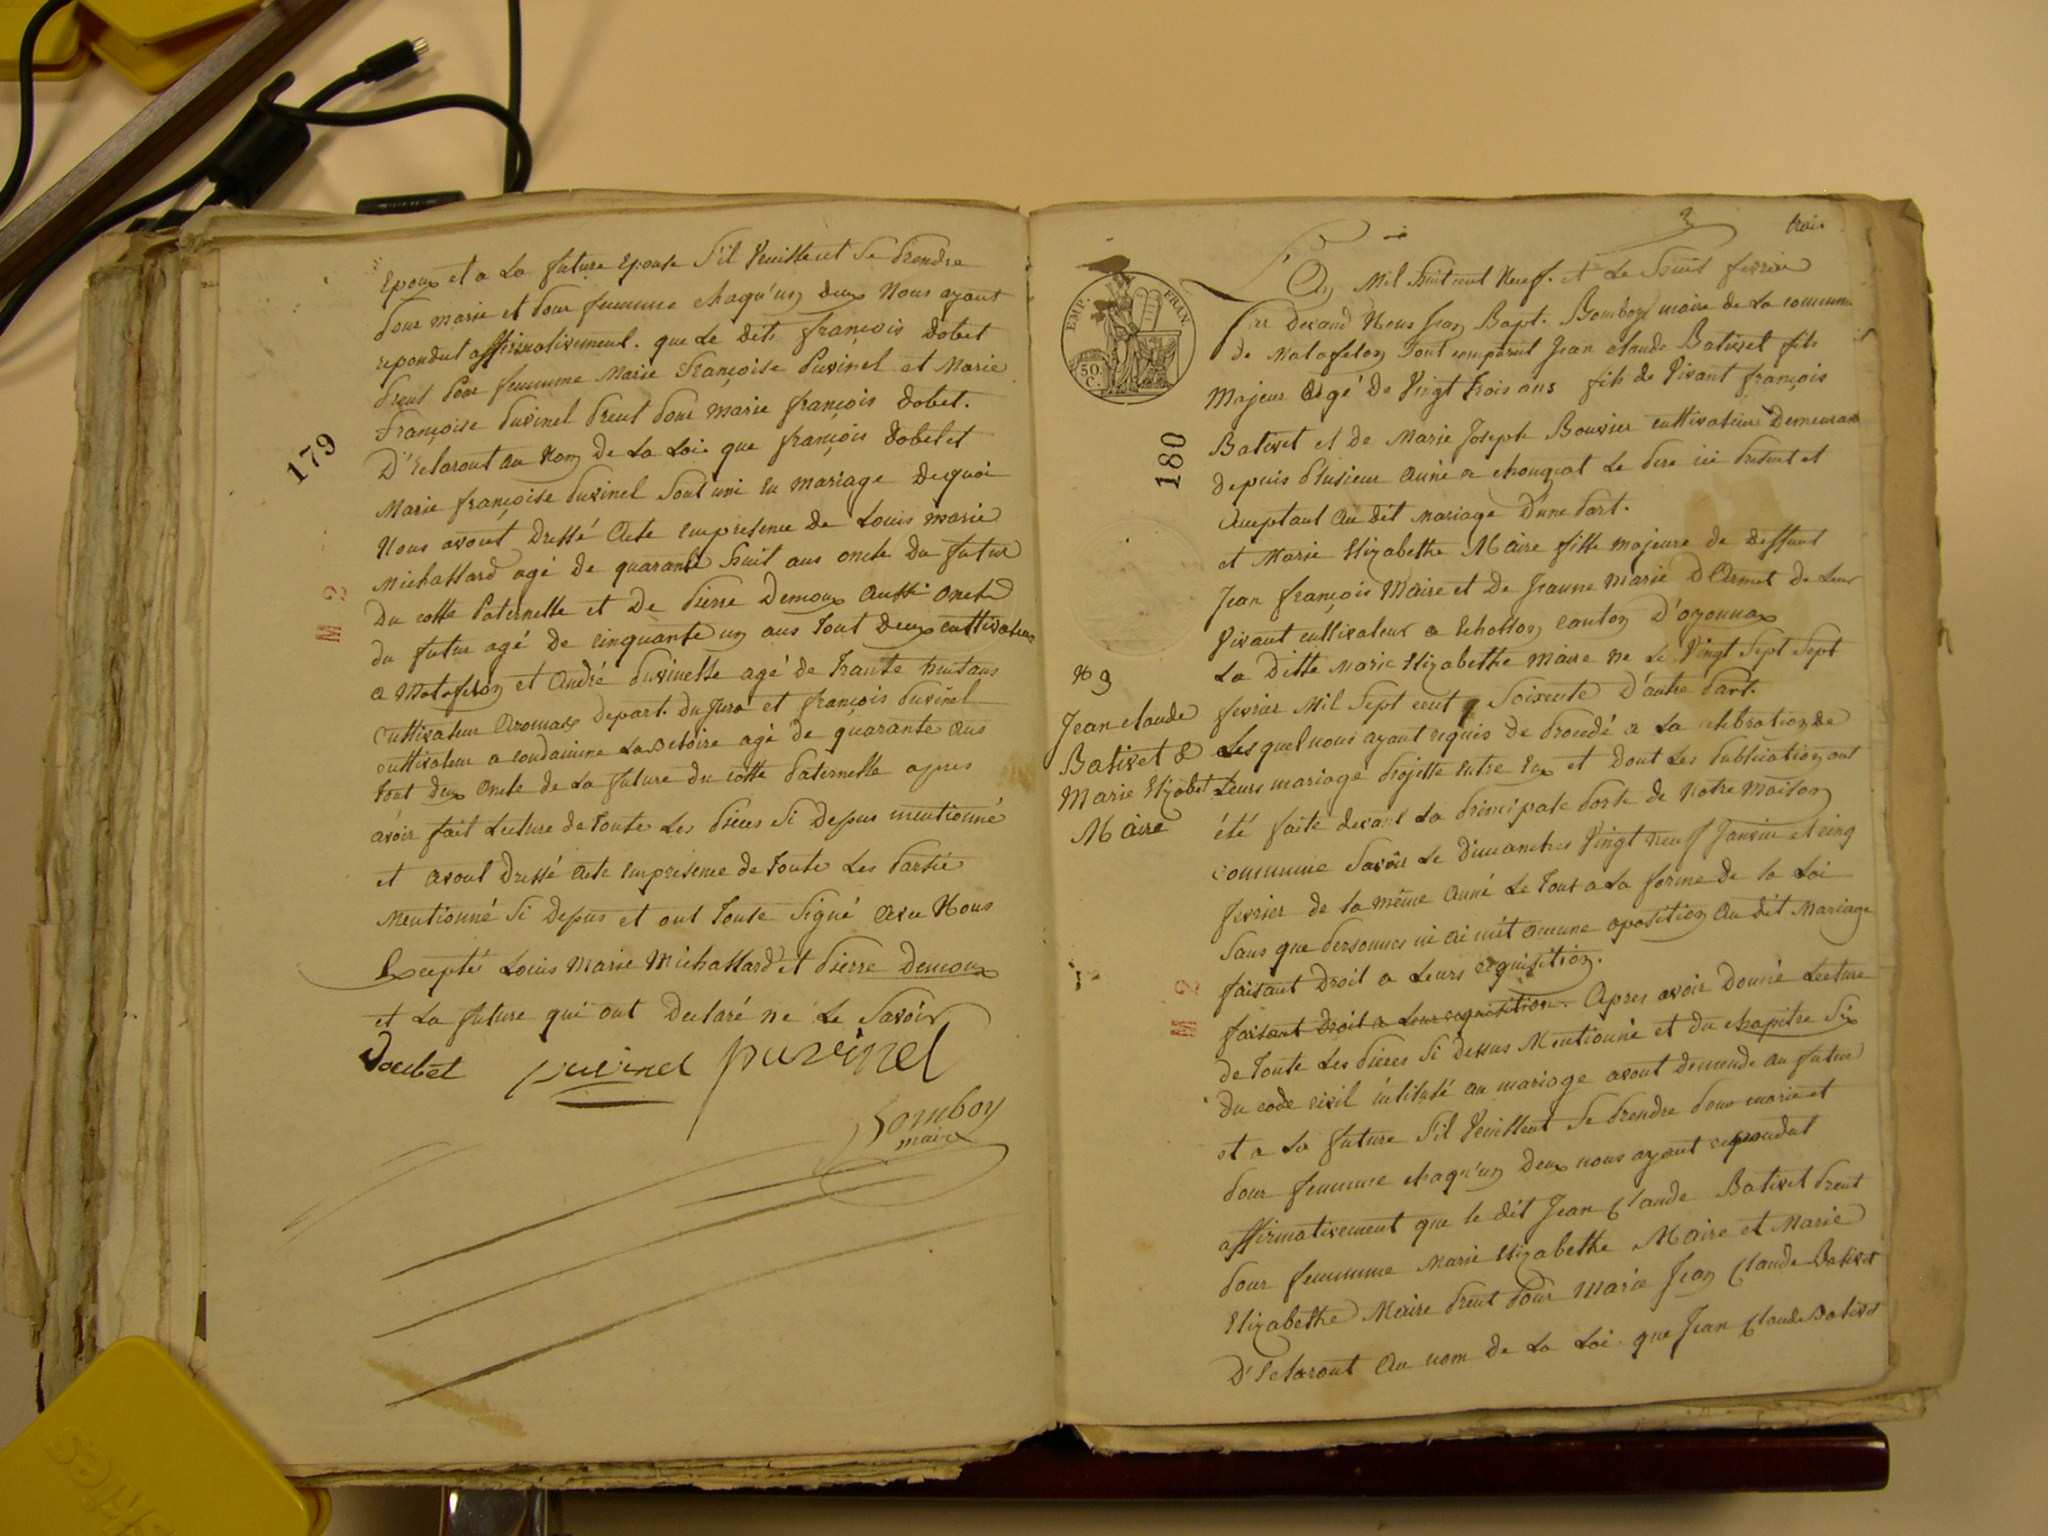 Epoux et a La future Epouse S'il Veuillent Se Prendre
Pour marie et Pour femme chaqu'un deux Nous ayant
repondut affirmativement. que Le dit francois Dobet
Prent Pour femme Marie Françoise Puvinel et Marie
Françoise Puvinel Prent Pour Marie françois Dobet.
D'Eclaront au Nom de La Loi que françois Dobet et
Marie françoise Puvinel Sont uni En mariage Dequoi
Nous avont Dressé Acte Enpresence De Louis marie
Michallard agé De quarante huit ans oncle Du futur
Du Cotte Paternelle et De Pierre Demoux Aussi oncle
du futur agé de cinquante un ans tout Deux cultivateur
a Matafelon et André Puvinelle agé de Trante huit ans
Cultivateur Aromas Depart. Du Jura et françois Puvinel
cultivateur a Condamine La agé de quarante ans
tout deux oncle de La future du Cotte Paternelle apres
avoir fait Lecture de Toute Les Pieces Si Depus mentionné
et avont Dressé Acte Enpresence de Toute Les Partie
Mentionné Si Depus et ont Toute Signé Avec Nous
Excepté Louis Marie Michallard et Pierre Demoux
et La future qui ont Declaré ne Le Savoir
Doubet puvinel puvinel
Bomboy
maire
179
M 2
3 trois
EMP. FRAN.
50. C.
180
L'An Mil huit cent Neuf. et Le huit fevrier
Par Devand Nous Jean Bapt. Bomboy maire de La commune
de Matafelon Sont comparut Jean Claude Bativet fils
Majeur Agé De Vingt Trois ans fils de Vivant françois
Bativet et de Marie Joseph Bouvier cultivateur Demeurant
depuis Plusieur Anné a chougeat Le Pere ici Present et
Aceptant Au dit Mariage D'une Part.
et Marie Elizabethe Maire fille majeure de Deffunt
Jean françois Maire et De Jeanne Marie D'Armet de Leur
Vivant cultivateur a Echallon canton D'oyonnax
La Ditte Marie Elizabethe Maire Ne Le Vingt Sept Sept
fevrier Mil Sept cent Soixente D'autre Part.
Lesquel nous ayant requis de Procédé a La celebration de
Leurs mariage Projette Entre Eux et Dont Les Publication ont
été faite devant La Principale Porte de Notre Maison
commune Savoir Le Dimanches Vingt neuf Janvier et cinq
fevrier de la même Anné Le Tout a La forme De la Loi
Sans que Personnes ni ai mit aucune oposition Au dit Mariage
faisant Droit a Leurs requisition.
faisant Droit a Leur requisition. Apres avoir Donné Lecture
de Toute Les Pieces Si dessus Mentionné et du chapitre Six
Du code civil intitulé au mariage avont demende au futur
et a La future S'il Veuillent Se Prendre Pour marie et
Pour femme chaqu'un Deux nous ayant repondut
affirmativement que le dit Jean Claude Bativet Prent
Pour femme Marie Elizabethe Maire et Marie
Elizabethe Maire Prent Pour Marie Jean Claude Bativet
D'Eclaront Au nom De La Loi que Jean Claude Bativet
N° 3
Jean claude
Bativet &
Marie Elizabet
Maire
M 2